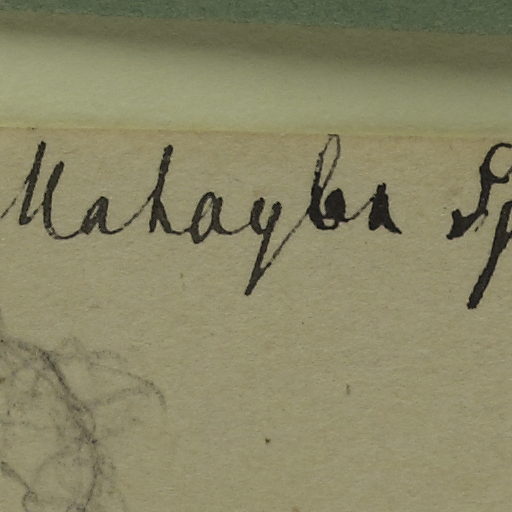 Mahayba Sp